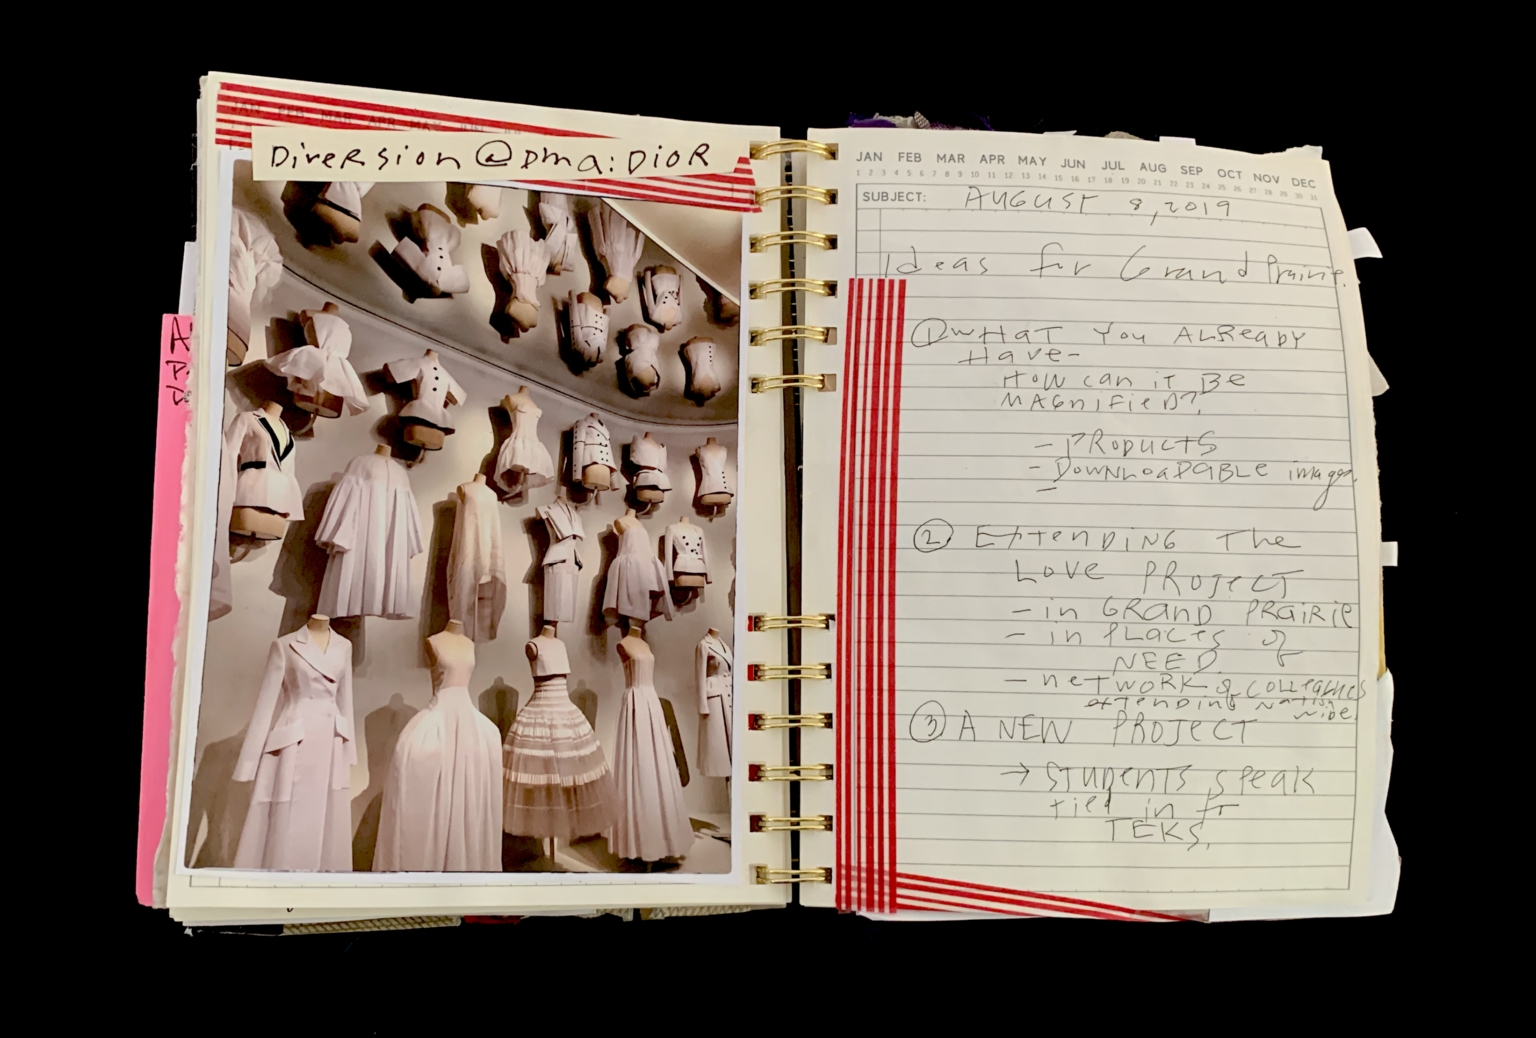 JAN FEB MAR APR MAY JUN
Diversion @ Dma: DIOR
A
JAN FEB MAR APR MAY JUN JUL AUG SEP OCT NOV DEC
1 2 3 4 5 6 7 8 9 10 11 12 13 14 15 16 17 18 19 20 21 22 23 24 25 26 27 28 29 30 31
SUBJECT: AUGUST 8, 2019
Ideas for Grand Prairie.
① WHaT You ALReADy
Have-
How can iT Be
MAGnifieD?
- PRoDucTS
- DownLoaDABLE images
-
② ExTenDiNG The
Love PRoJecT
- in GRanD PRaiRiE
- in PLaces of
NEED
- neTwoRK of colleagues
exTenDinG naTion
wide.
③ A NEW PRoJECT
→ STuDenTS SPeak
tied in to
TEKS.